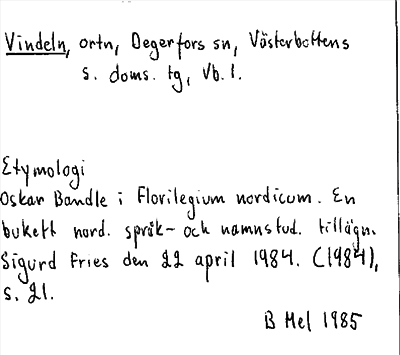 Vindeln, ortn, Degerfors sn, Västerbottens
s. doms. tg, Vb. l.
Etymologi
Oskar Bandle i Florilegium nordicum. En
bukett nord. språk- och namnstud. tillägn.
Sigurd Fries den 22 april 1984. (1984),
s. 21.
B Mel 1985